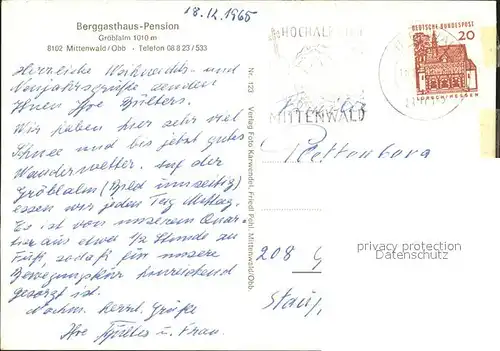 18.12.1965
Berggasthaus-Pension
Gröblalm 1010 m
8102 Mittenwald/Obb · Telefon 08823/533
Herrliche Weihnachts- und
Neujahrsgrüße senden
Ihnen Ihre
Wir haben hier sehr viel
Schnee und bis jetzt gutes
Wanderwetter. Auf der
Gröblalm (Bild umseitig)
essen wir jeden Tag Mittag.
Es ist von unserem Quar-
tier aus etwa 1/2 Stunde zu
Fuß, sodaß für unsere
Bewegung hinreichend
gesorgt ist.
Nochm. herzl. Grüße
Ihre u. Frau.
Nr. 123 Verlag Foto Karwendel, Friedl Pöhl, Mittenwald/Obb.
HOCHALPE
MITTENWALD
DEUTSCHE BUNDESPOST
20
LORSCH/HESSEN
Familie
208
privacy protection
Datenschutz